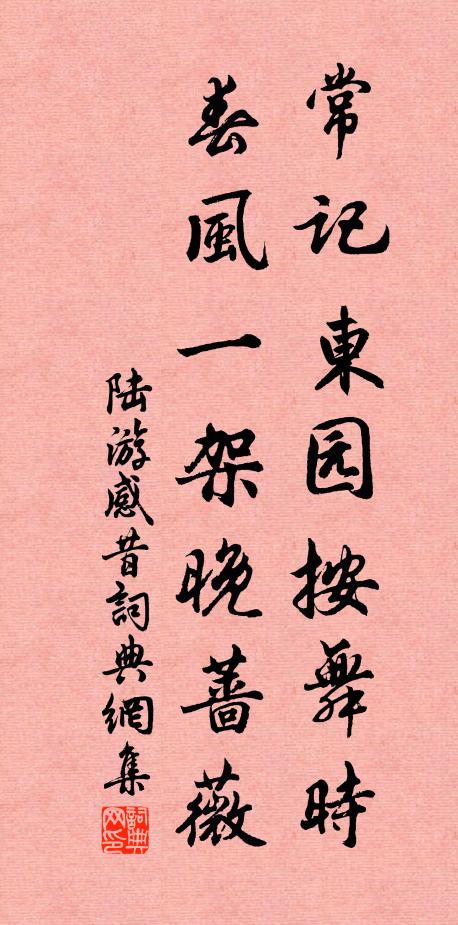 常记東园按舞時
春風一架晚蔷薇
陆游感昔詞典網集
詞典网印